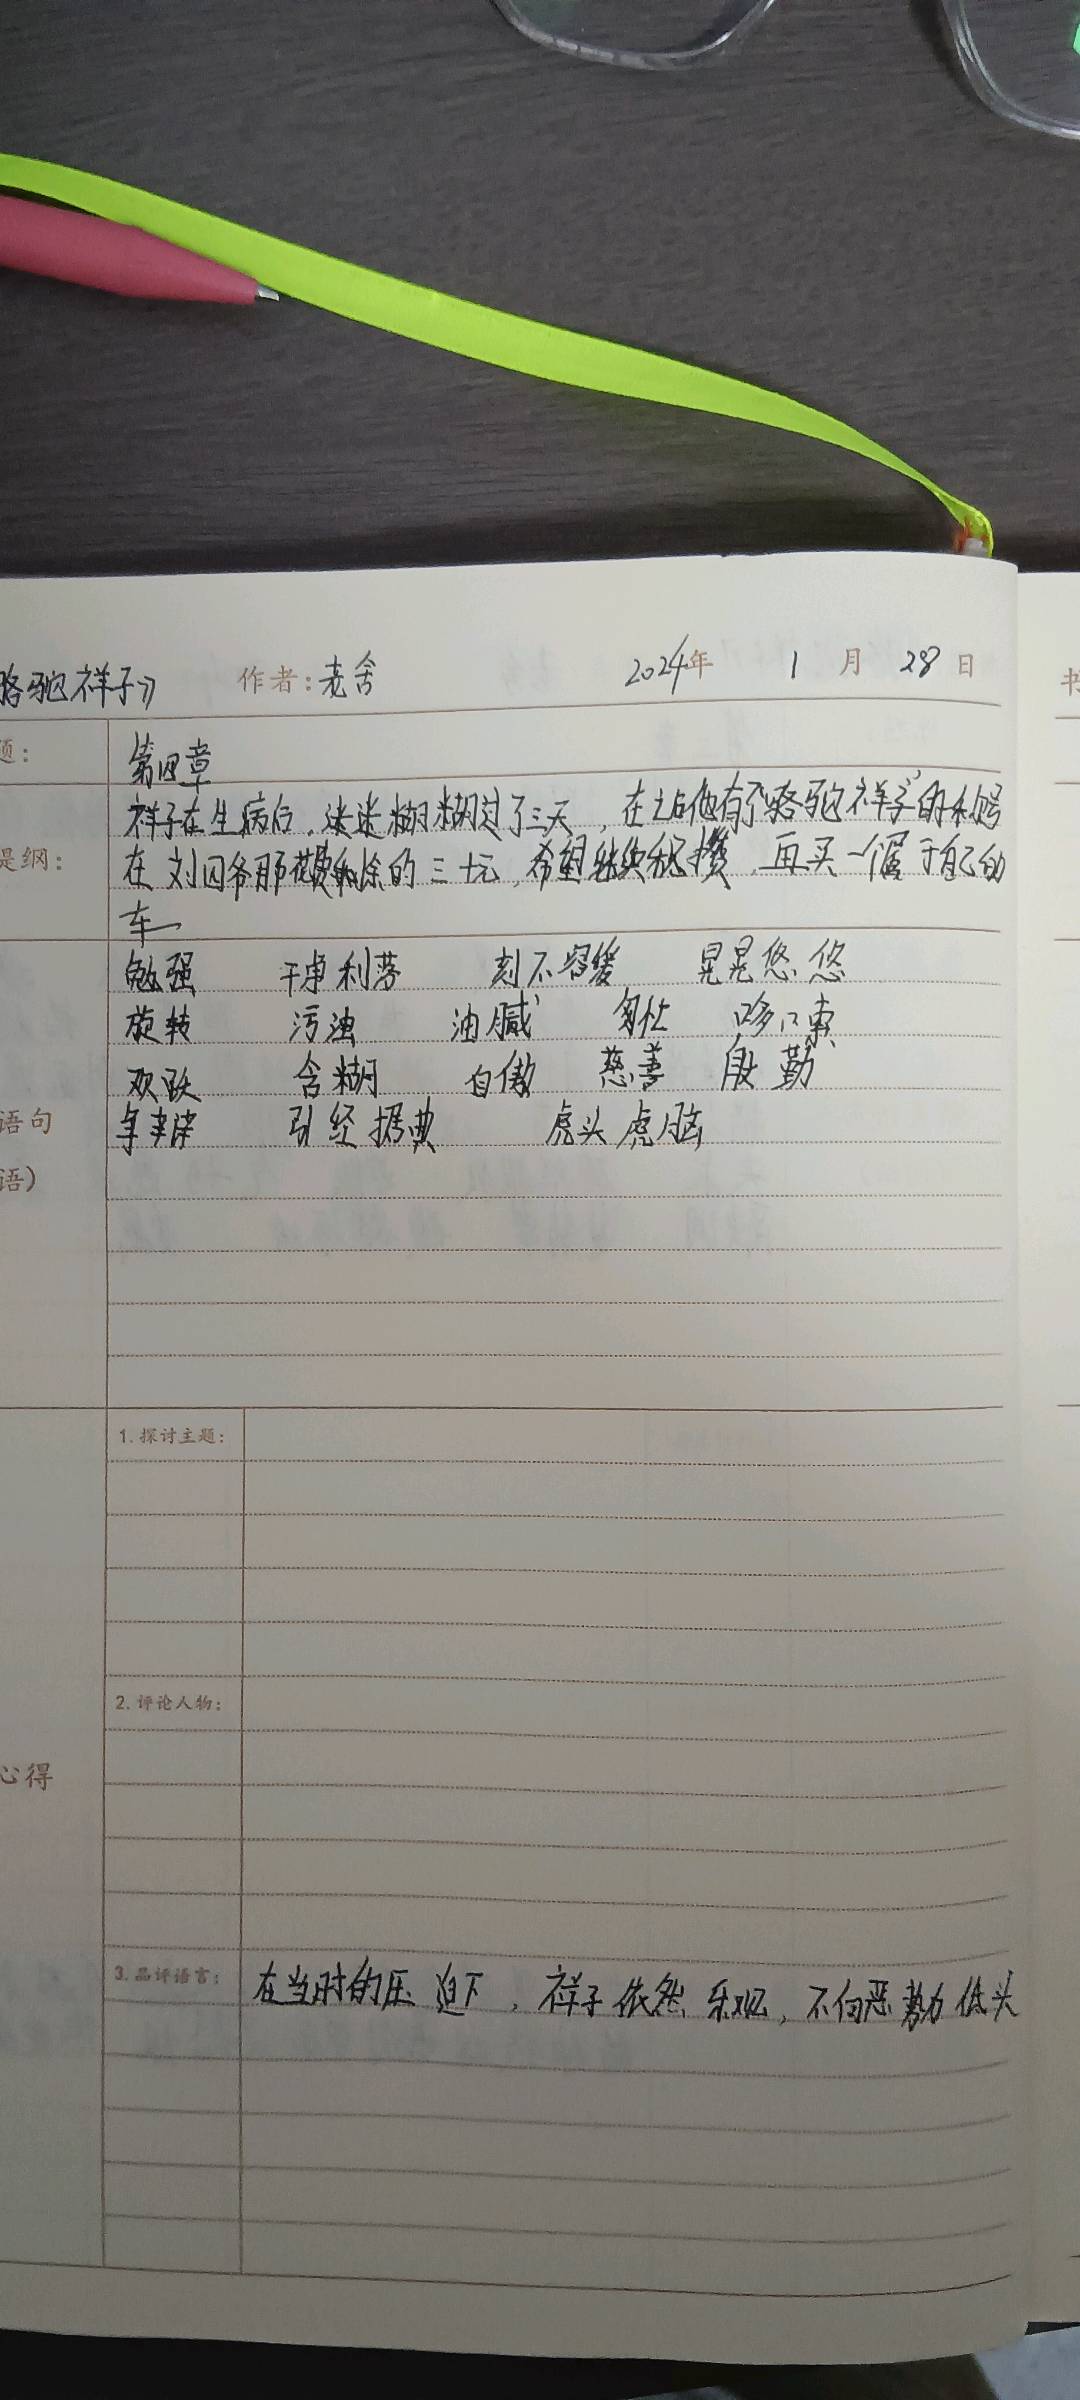 骆驼祥子》 作者：老舍 2024年 1 月 28 日
书
题：
第四章
祥子在生病后，迷迷糊糊过了三天，在之后他有了“骆驼祥子”的称号
提纲：
在刘四爷那花费剩余的三十元，希望继续积攒，再买一个属于自己的
车
勉强 干净利落 刻不容缓 晃晃悠悠
旋转 污浊 油腻 匆忙 哆嗦
欢跃 含糊 自傲 慈善 殷勤
语句
引经据典 虎头虎脑
语）
1.探讨主题：
2.评论人物：
心得
3.品评语言： 在当时的压迫下，祥子依然乐观，不向恶势力低头